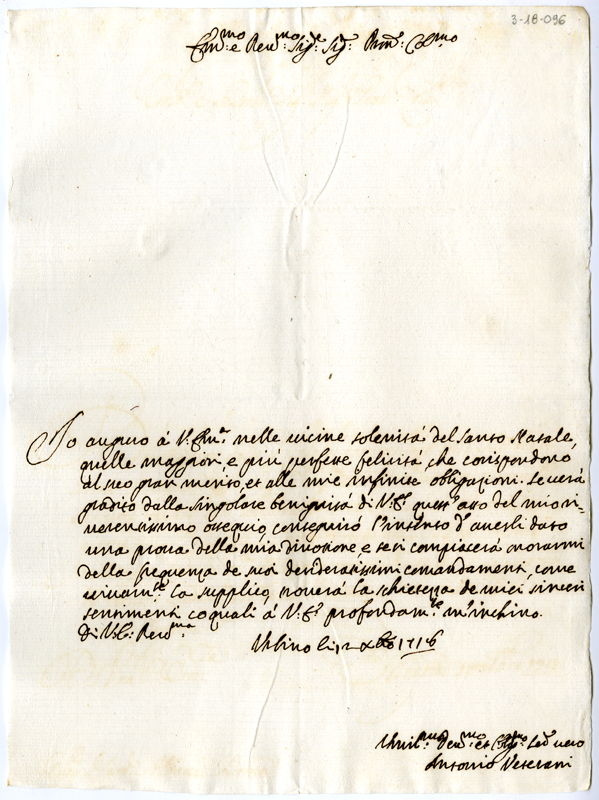 3-18-096
Em.mo e Rev.mo Sig.re Sig. Pron. Col.mo
Io auguro á V. Em.a nelle vicine solenitá del Santo Natale,
quelle maggiori, e piú perfette felicitá, che corispondono
al suo gran merito, et alle mie infinite obligazioni. Se verá
gradito dalla singolare benignitá di V. E. quest'atto del mio ri=
verentissimo ossequio, conseguiró l'intento d'averli dato
una prova della mia divozione, e se si compiacerá onorarmi
della frequenza de suoi desideratissimi comandamenti, come
vivam.te La supplico, troverá la schietezza de miei sinceri
sentimenti co quali á V. E. profondam.te m'inchino.
Di V. E. Rev.ma
Urbino li 12 Xbre 1716
Umil.mo Dev.mo et Oblig.mo Ser. vero
Antonio Veterani